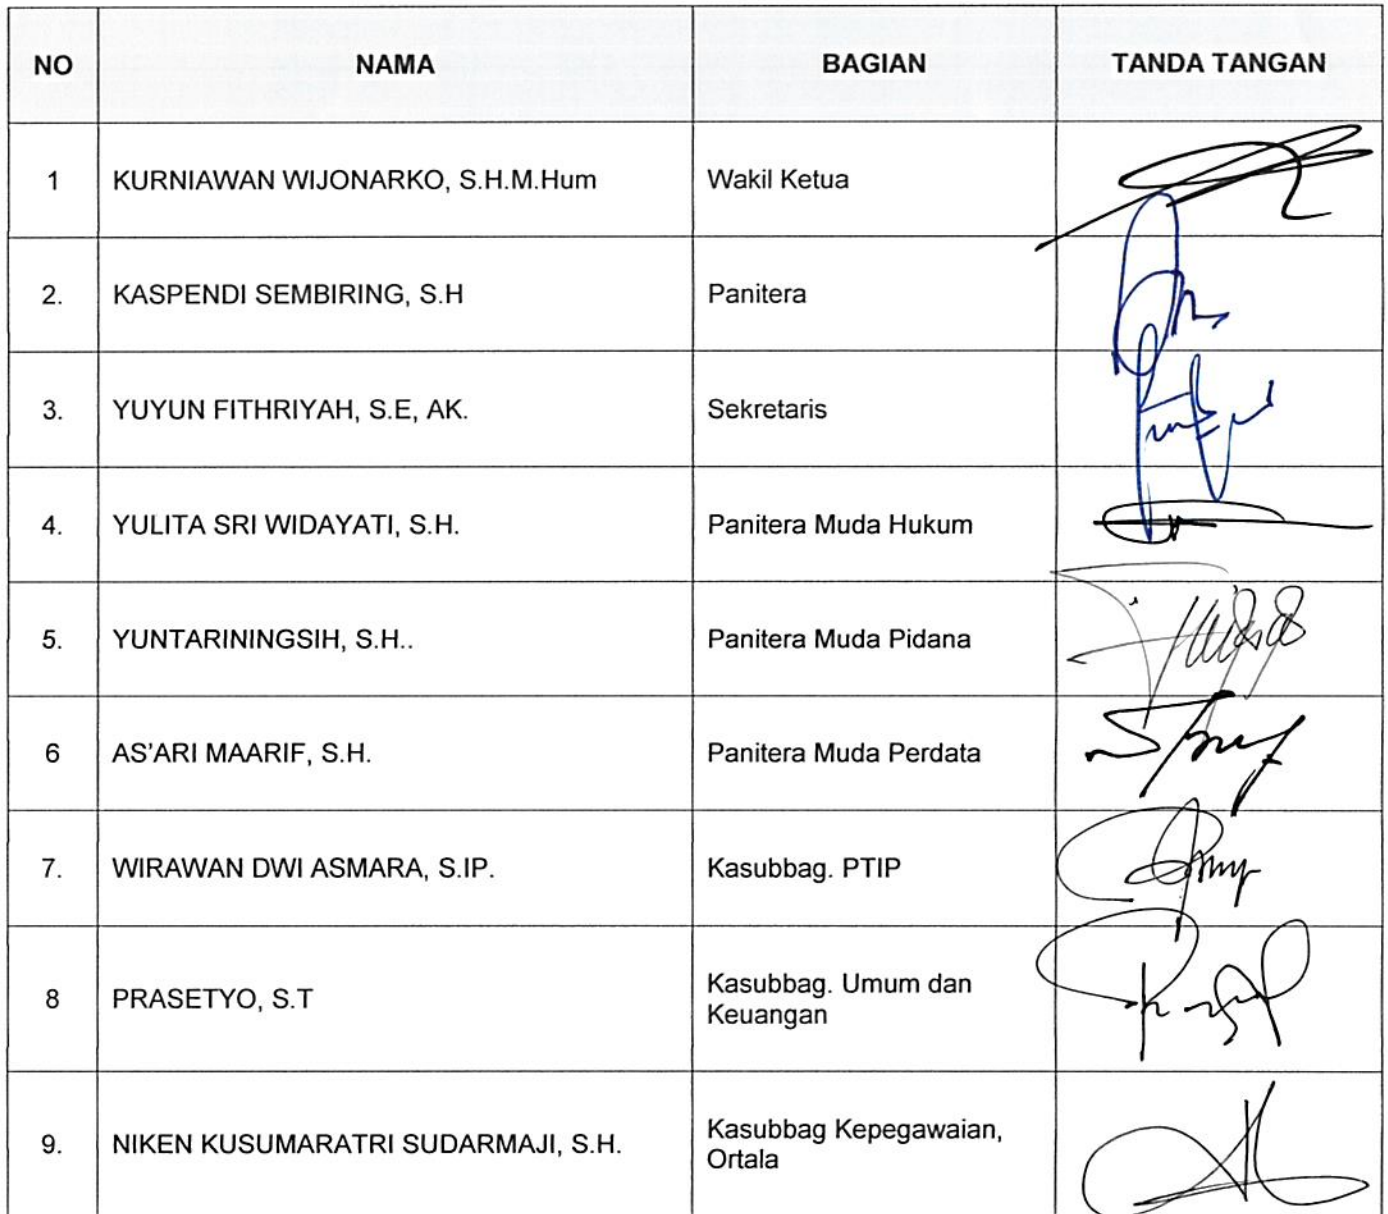 NO NAMA BAGIAN TANDA TANGAN
1 KURNIAWAN WIJONARKO, S.H.M.Hum Wakil Ketua
2. KASPENDI SEMBIRING, S.H Panitera
3. YUYUN FITHRIYAH, S.E, AK. Sekretaris
4. YULITA SRI WIDAYATI, S.H. Panitera Muda Hukum
5. YUNTARININGSIH, S.H.. Panitera Muda Pidana
6 AS'ARI MAARIF, S.H. Panitera Muda Perdata
7. WIRAWAN DWI ASMARA, S.IP. Kasubbag. PTIP
8 PRASETYO, S.T Kasubbag. Umum dan
Keuangan
9. NIKEN KUSUMARATRI SUDARMAJI, S.H. Kasubbag Kepegawaian,
Ortala